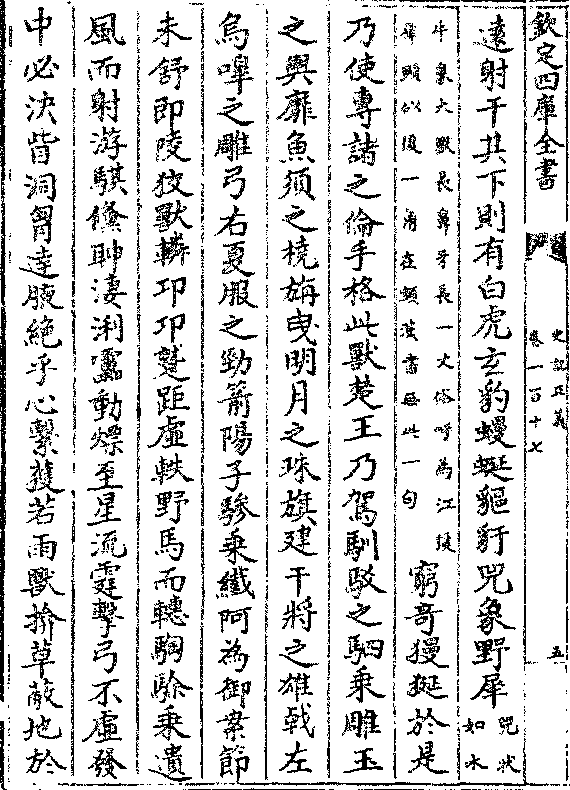 欽定四庫全書
史記正義
卷一百十七
五
遠射干其下則有白虎玄豹蟃蜒貙豻兕象野犀
兕狀
如水
牛象大獸長鼻牙長一丈俗呼為江猨
犀頭似猨一角在額漢書無此一句
窮奇獌狿於是
乃使專諸之倫手格此獸楚王乃駕馴駮之駟乘雕玉
之輿靡魚須之橈旃曳明月之珠旗建干將之雄戟左
烏嘷之雕弓右夏服之勁箭陽子驂乘纖阿為御案節
未舒即陵狡獸轔邛邛蹵距虛軼野馬而轊騊駼乘遺
風而射游騏儵眒淒浰靁動熛至星流霆擊弓不虛發
中必決眥洞胷達腋絕乎心繫獲若雨獸揜草蔽地於